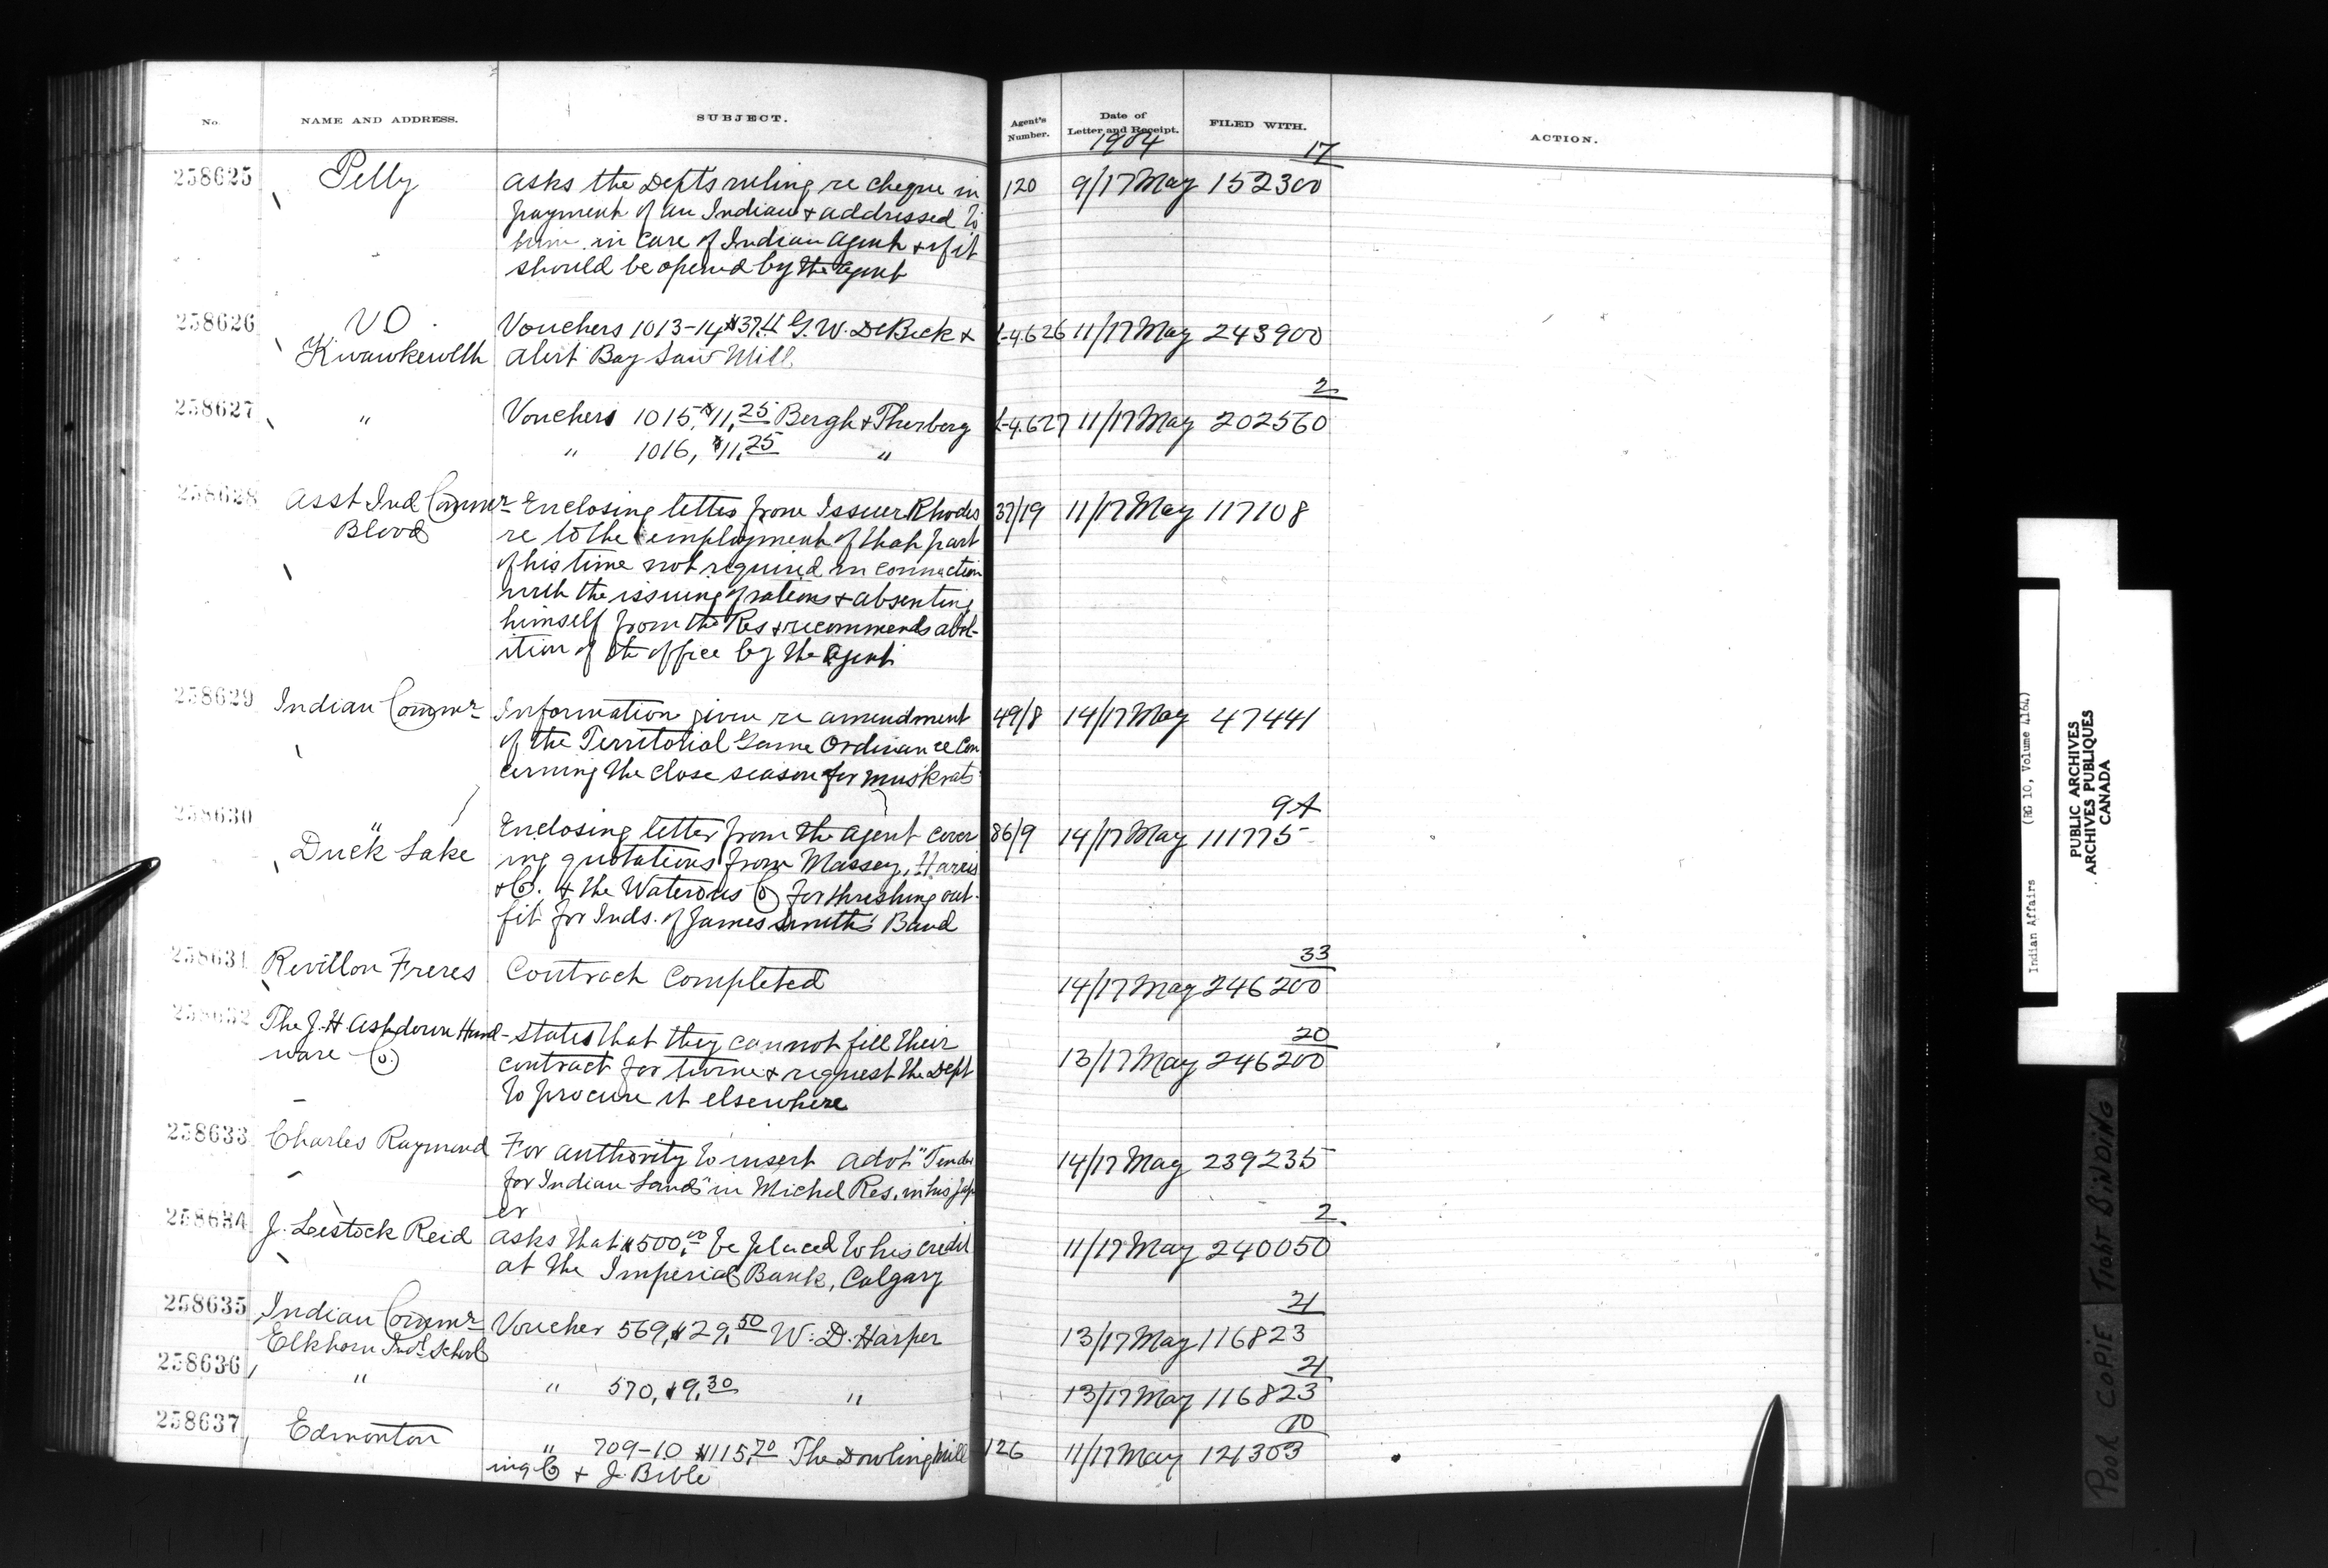 No. NAME AND ADDRESS. SUBJECT. Agent's Number. Date of Letter and Receipt. FILED WITH. ACTION.
1904
17
258625 Pelly asks the Depts ruling re cheque in 120 9/17 May 152300
payment of an Indian & addressed to
him in care of Indian Agent & if it
should be opened by the Agent
258626 VO Vouchers 1013-14 $37.11 G.W. DeBeck & 11/17 May 243900
Kwawkewlth Alert Bay Saw Mill
2
258627 " Vouchers 1015, $11.25 Bergh & Thurberg 11/17 May 202560
" 1016, $11.25 "
258628 Asst Ind Commr Enclosing letter from Issuer Rhodes 37/19 11/17 May 117108
Blood re to the employment of that part
of his time not required in connection
with the issuing of rations & absenting
himself from the Res & recommends abol-
ition of the office by the Agent
258629 Indian Commr Information given re amendment 49/8 14/17 May 47441
of the Territorial Game Ordinance con
cerning the close season for muskrats
9A
258630 " Enclosing letter from the agent cover 86/9 14/17 May 111775
Duck Lake ing quotations from Massey, Harris
& Co. & the Waterous Co for threshing out-
fit for Inds. of James Smith's Band
33
258631 Revillon Freres Contract Completed 14/17 May 246200
20
258632 The J.H. Ashdown Hard- States that they cannot fill their 13/17 May 246200
ware Co. contract for twine & request the Dept
to procure it elsewhere
258633 Charles Raymond For authority to insert advt "Tender 14/17 May 239235
for Indian Lands" in Michel Res. in his pap
er
2
258634 J. Lestock Reid asks that $500.00 be placed to his credit 11/17 May 240050
at the Imperial Bank, Calgary
21
258635 Indian Commr Voucher 569, $29.50 W. D. Harper 13/17 May 116823
Elkhorn Indl School
21
258636 " " 570, $9.30 " 13/17 May 116823
10
258637 Edmonton " 709-10 $115.70 The Dowling Mill 126 11/17 May 121303
ing Co & J. Bible
Indian Affairs (RG 10, Volume 4164)
PUBLIC ARCHIVES
ARCHIVES PUBLIQUES
CANADA
POOR COPIE TIGHT BINDING